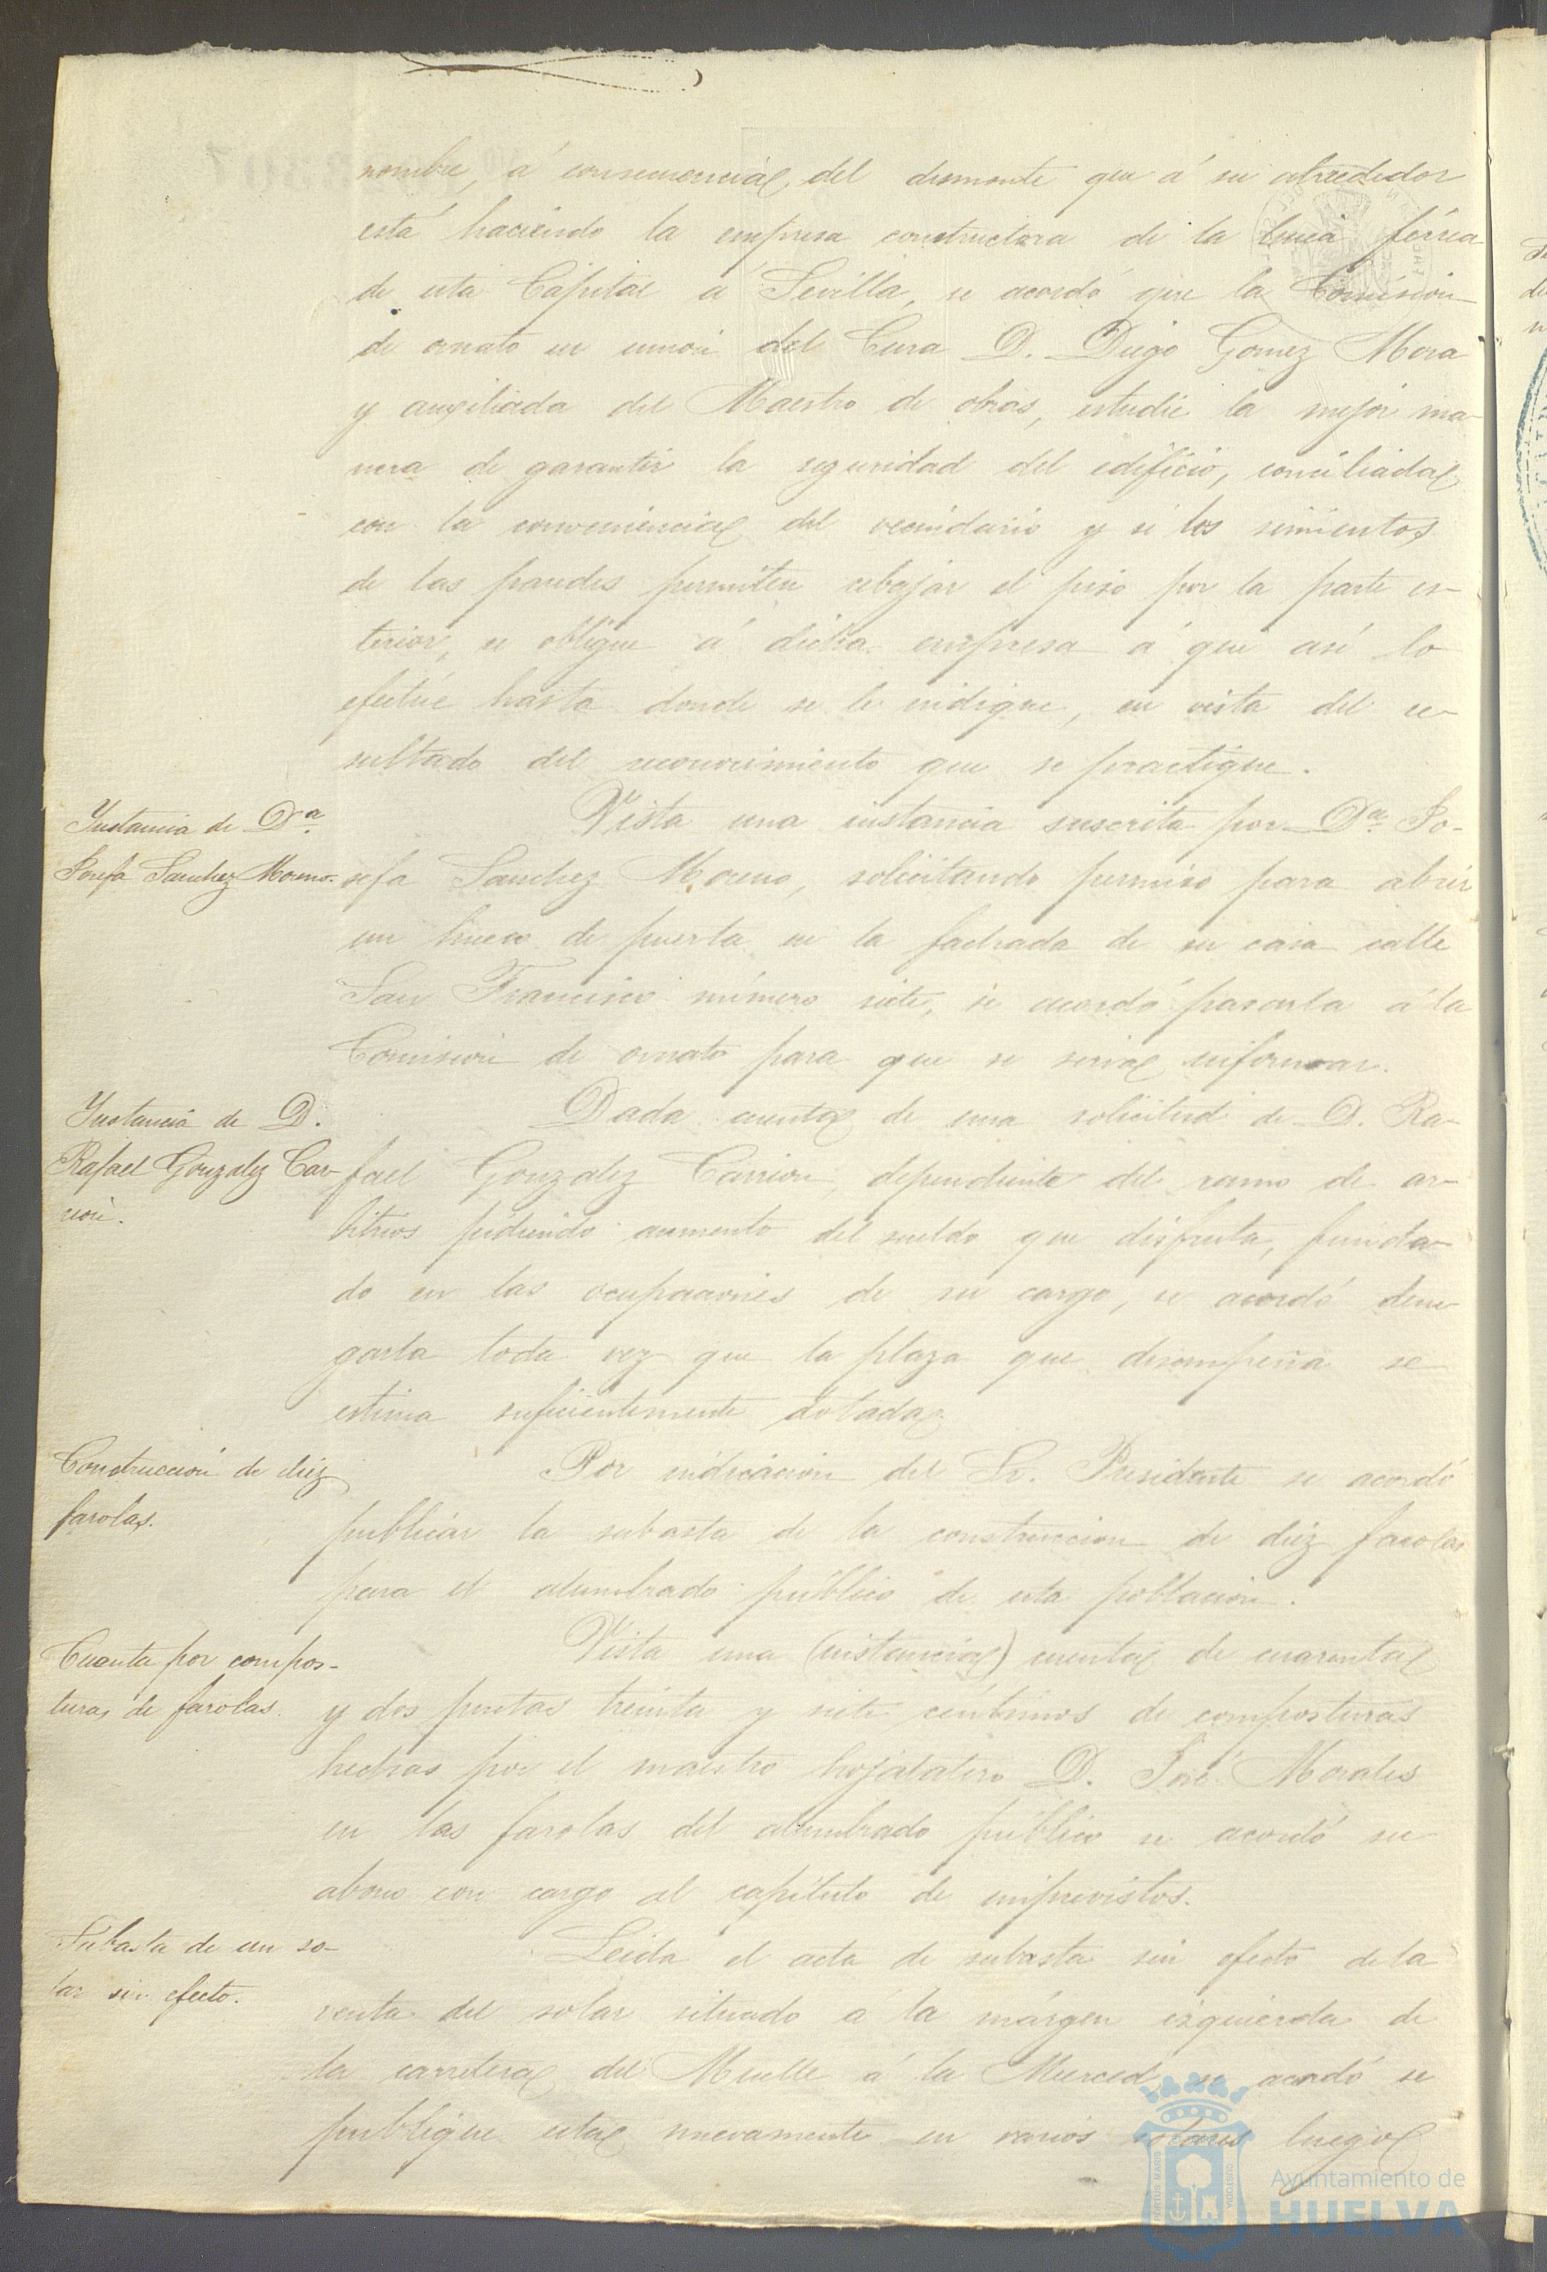 nombre, á consecuencia del desmonte que á su alrededor
está haciendo la empresa constructora de la linea férrea
de esta Capital á Sevilla, se acordó que la Comision
de ornato en union del Cura D. Diego Gomez Mora
y auxiliada del Maestro de obras, estudie la mejor ma-
nera de garantir la seguridad del edificio, conciliada
con la conveniencia del vecindario y si los simientos
de las paredes permiten rebajar el piso por la parte es-
terior, se obligue á dicha empresa á que así lo
efectúe hasta donde se le indique, en vista del re-
sultado del reconocimiento que se practique.
Instancia de Dª
Josefa Sanchez Moreno.
Vista una instancia suscrita por Dª Jo-
sefa Sanchez Moreno, solicitando permiso para abrir
un hueco de puerta en la fachada de su casa calle
San Francisco número siete, se acordó pasarla á la
Comision de ornato para que se sirva informar.
Instancia de D.
Rafael Gonzalez Car-
rion.
Dada cuenta de una solicitud de D. Ra-
fael Gonzalez Carrion, dependiente del ramo de ar-
bitrios pidiendo aumento del sueldo que disfruta, funda-
do en las ocupaciones de su cargo, se acordó dene-
garla toda vez que la plaza que desempeña se
estima suficientemente dotada.
Construccion de diez
farolas.
Por indicacion del Sr. Presidente se acordó
publicar la subasta de la construccion de diez farolas
para el alumbrado público de esta poblacion.
Cuenta por compos-
turas de farolas.
Vista una (instancia) cuenta de cuarenta
y dos pesetas treinta y siete céntimos de composturas
hechas por el maestro hojalatero D. José Morales
en las farolas del alumbrado público se acordó su
abono con cargo al capítulo de imprevistos.
Subasta de un so-
lar sin efecto.
Leida el acta de subasta sin efecto de la
venta del solar situado a la márgen izquierda de
la carretera del Muelle á la Merced, se acordó se
publique esta nuevamente en varios solares luego
Ayuntamiento de
HUELVA